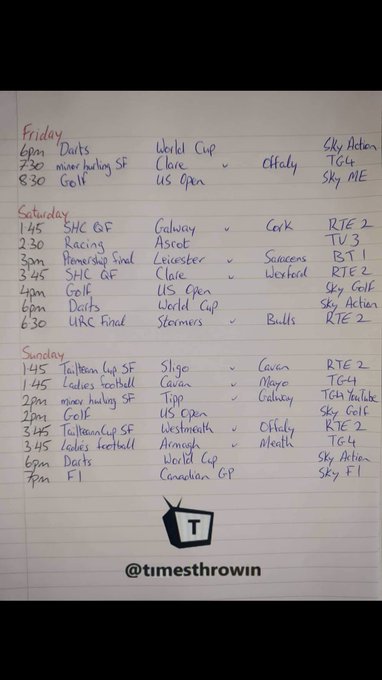 Friday
6pm Darts World Cup Sky Action
7:30 minor hurling SF Clare v Offaly TG4
8:30 Golf US Open Sky ME
Saturday
1:45 SHC QF Galway v Cork RTE 2
2:30 Racing Ascot TV3
3pm Premership final Leicester v Saracens BT 1
3:45 SHC QF Clare v Wexford RTE 2
4pm Golf US Open Sky Golf
6pm Darts World Cup Sky Action
6:30 URC Final Stormers v Bulls RTE 2
Sunday
1:45 Tailteann Cup SF Sligo v Cavan RTE 2
1:45 Ladies football Cavan v Mayo TG4
2pm minor hurling SF Tipp v Galway TG4 YouTube
2pm Golf US Open Sky Golf
3:45 Tailteann Cup SF Westmeath v Offaly RTE 2
3:45 Ladies football Armagh v Meath TG4
6pm Darts World Cup Sky Action
7pm F1 Canadian GP Sky F1
T
@timesthrowin